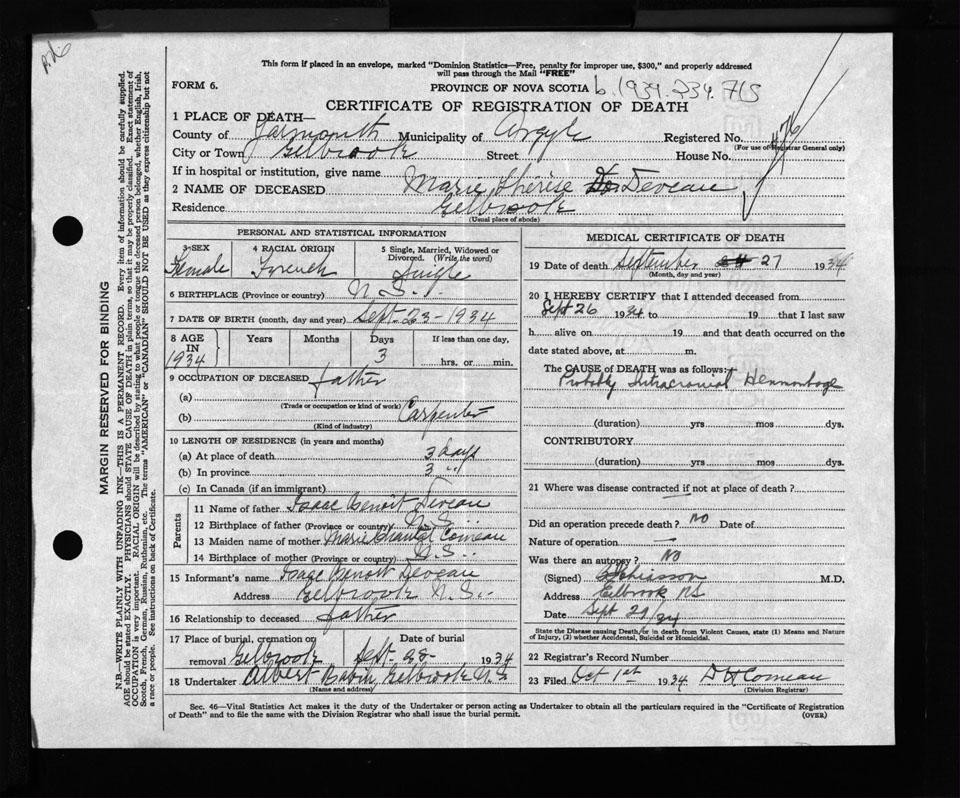 This form if placed in an envelope, marked "Dominion Statistics—Free, penalty for improper use, $300," and properly addressed
will pass through the Mail "FREE"
FORM 6.
PROVINCE OF NOVA SCOTIA b. 1934. 234. 715
CERTIFICATE OF REGISTRATION OF DEATH
1 PLACE OF DEATH—
County of Yarmouth Municipality of Argyle Registered No. 476
(For use of Registrar General only)
City or Town Eelbrook Street House No.
If in hospital or institution, give name
2 NAME OF DECEASED Marie Thérèse Deveau
Residence Eelbrook
(Usual place of abode)
MARGIN RESERVED FOR BINDING
N.B.—WRITE PLAINLY WITH UNFADING INK—THIS IS A PERMANENT RECORD. Every item of information should be carefully supplied.
AGE should be stated EXACTLY. PHYSICIANS should STATE CAUSE OF DEATH in plain terms, so that it may be properly classified. Exact statement of
OCCUPATION is very important. RACIAL ORIGIN will be described by stating to what people or tongue the deceased person belonged, whether English, Irish,
Scotch, French, German, Russian, Ruthenian, etc. The terms "AMERICAN" or "CANADIAN" SHOULD NOT BE USED as they express citizenship but not
a race or people. See instructions on back of Certificate.
PERSONAL AND STATISTICAL INFORMATION
3 SEX Female
4 RACIAL ORIGIN French
5 Single, Married, Widowed or Divorced. (Write the word) Single
6 BIRTHPLACE (Province or country) N.S.
7 DATE OF BIRTH (month, day and year) Sept. 23-1934
8 AGE IN 1934 Years Months Days 3 If less than one day, hrs. or min.
9 OCCUPATION OF DECEASED father
(a)
(Trade or occupation or kind of work)
(b) Carpenter
(Kind of industry)
10 LENGTH OF RESIDENCE (in years and months)
(a) At place of death 3 days
(b) In province 3 "
(c) In Canada (if an immigrant)
Parents
11 Name of father Isaac Benoit Deveau
12 Birthplace of father (Province or country) N.S.
13 Maiden name of mother Marie Chantal Comeau
14 Birthplace of mother (Province or country) N.S.
15 Informant's name Isaac Benoit Deveau
Address Eelbrook N.S.
16 Relationship to deceased father
17 Place of burial, cremation or removal Eelbrook Date of burial Sept. 28- 1934
18 Undertaker Albert Babin, Eelbrook N.S
(Name and address)
MEDICAL CERTIFICATE OF DEATH
19 Date of death September 27 1934
(Month, day and year)
20 I HEREBY CERTIFY that I attended deceased from
Sept 26 1934 to 19 that I last saw
h alive on 19 and that death occurred on the
date stated above, at m.
The CAUSE of DEATH was as follows:
Probably Intracranial Hemmorhage
(duration) yrs mos dys.
CONTRIBUTORY
(duration) yrs mos dys.
21 Where was disease contracted if not at place of death?
Did an operation precede death? No Date of
Nature of operation —
Was there an autopsy? No
(Signed) Chiasson M.D.
Address Eelbrook NS
Date Sept 29/34
State the Disease causing Death, or in death from Violent Causes, state (1) Means and Nature
of Injury, (2) whether Accidental, Suicidal or Homicidal.
22 Registrar's Record Number
23 Filed Oct 1st 1934 D H Comeau
(Division Registrar)
Sec. 46—Vital Statistics Act makes it the duty of the Undertaker or person acting as Undertaker to obtain all the particulars required in the "Certificate of Registration
of Death" and to file the same with the Division Registrar who shall issue the burial permit. (OVER)